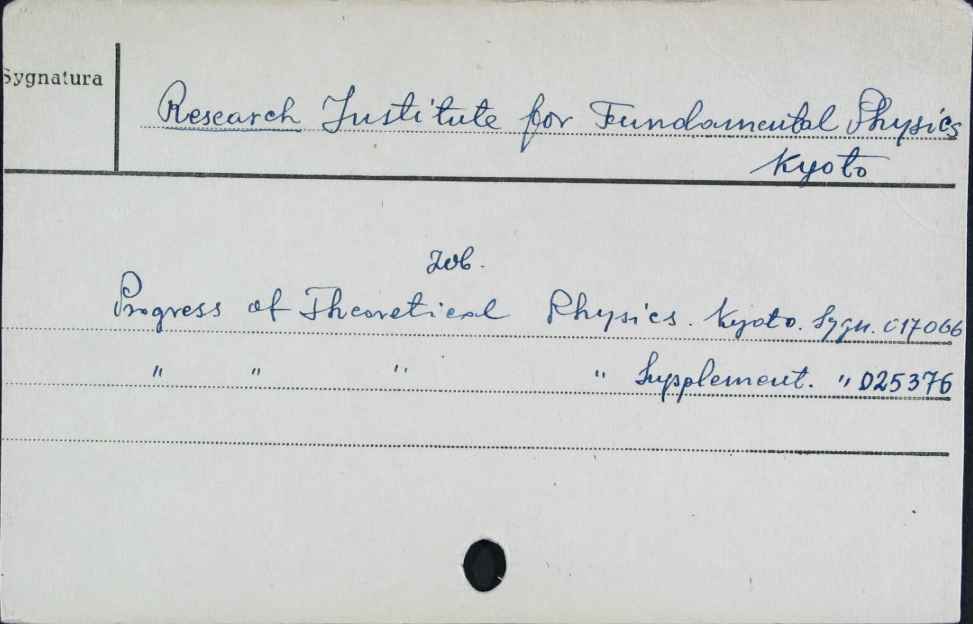 Sygnatura
Research Institute for Fundamental Physics
Kyoto
Zob.
Progress of Theoretical Physics. Kyoto. Sygn. C17066
" " " " Supplement. " D25376